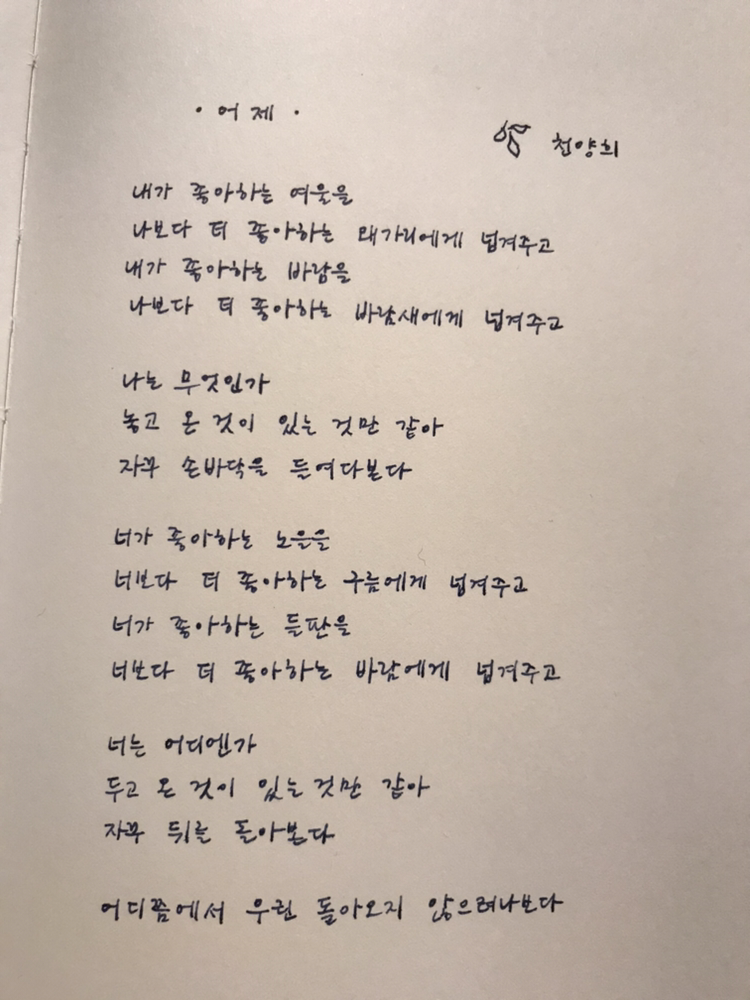 · 어제 ·
천양희
내가 좋아하는 여울을
나보다 더 좋아하는 왜가리에게 넘겨주고
내가 좋아하는 바람을
나보다 더 좋아하는 바람새에게 넘겨주고
나는 무엇인가
놓고 온 것이 있는 것만 같아
자꾸 손바닥을 들여다본다
너가 좋아하는 노을을
너보다 더 좋아하는 구름에게 넘겨주고
너가 좋아하는 들판을
너보다 더 좋아하는 바람에게 넘겨주고
너는 어디엔가
두고 온 것이 있는 것만 같아
자꾸 뒤를 돌아본다
어디쯤에서 우린 돌아오지 않으려나보다